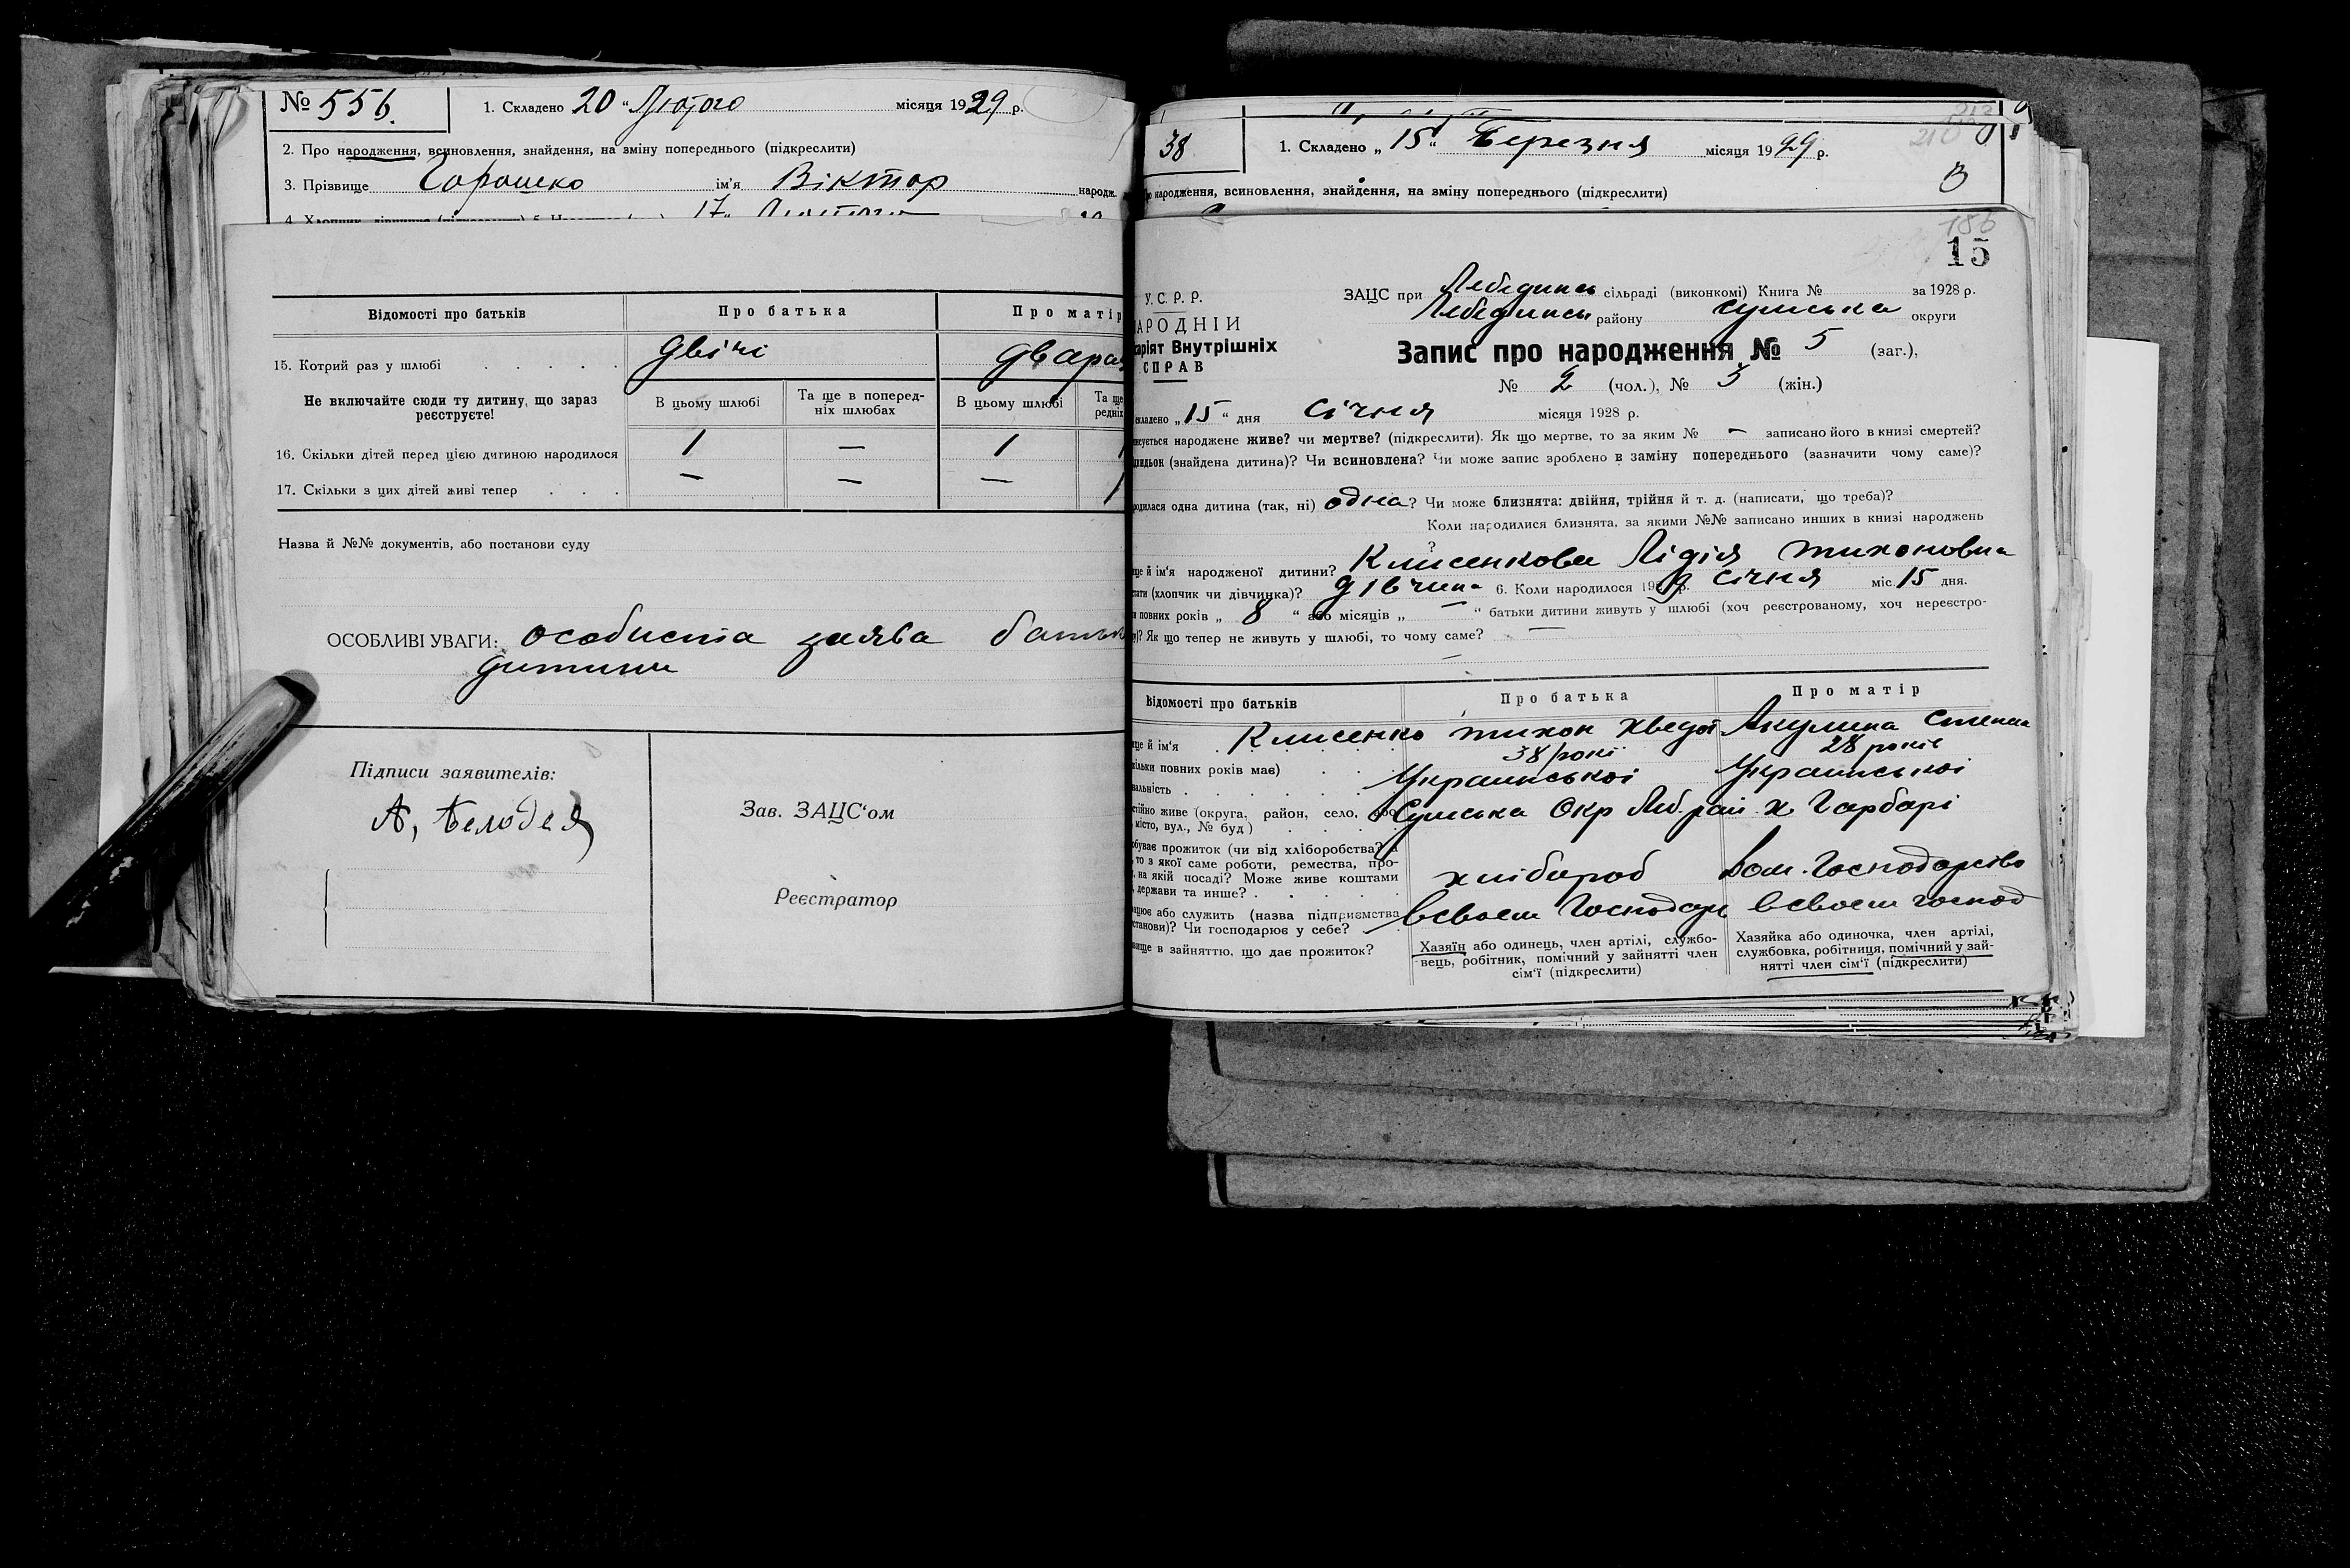 № 556.
1. Складено 20 "Лютого місяця 1929 р.
2. Про народження, всиновлення, знайдення, на зміну попереднього (підкреслити)
3. Прізвище ім'я Віктор народж.
17 Лютого
Відомості про батьків Про батька Про матір
15. Котрий раз у шлюбі . . . . . двічі
Не включайте сюди ту дитину, що зараз реєструєте!
В цьому шлюбі
Та ще в поперед-
ніх шлюбах
В цьому шлюбі
Та ще
редніх
16. Скільки дітей перед цією дитиною народилося 1 — 1
17. Скільки з цих дітей живі тепер . . . . — — — 1
Назва й №№ документів, або постанови суду
ОСОБЛИВІ УВАГИ: особиста заява батьк
дитини
Підписи заявителів:
Зав. ЗАЦС'ом
Реєстратор
38
1. Складено „ 15 " Березня місяця 1929 р.
о народження, всиновлення, знайдення, на зміну попереднього (підкреслити)
В
15
У. С. Р. Р.
АРОДНІЙ
аріят Внутрішніх
СПРАВ
ЗАЦС при Лебединсь сільраді (виконкомі) Книга № за 1928 р.
Лебединсь району Сумська округи
Запис про народження № 5 (заг.),
№ 2 (чол.), № 3 (жін.)
складено „ 15 " дня січня місяця 1928 р.
исується народжене живе? чи мертве? (підкреслити). Як що мертве, то за яким № — записано його в книзі смертей?
идьок (знайдена дитина)? Чи всиновлена? Чи може запис зроблено в заміну попереднього (зазначити чому саме)?
родилася одна дитина (так, ні) одна? Чи може близнята: двійня, трійня й т. д. (написати, що треба)?
Коли народилися близнята, за якими №№ записано инших в книзі народжень
?
ще й ім'я народженої дитини? Клисенкова Лідія Тихоновна
стати (хлопчик чи дівчинка)? дівчин 6. Коли народилося 1929 р. січня міс. 15 дня.
и повних років „ 8 " або місяців „ — " батьки дитини живуть у шлюбі (хоч реєстрованому, хоч нереєстро-
у)? Як що тепер не живуть у шлюбі, то чому саме? —
Відомості про батьків Про батька Про матір
ще й ім'я . Клисенко Тихон Хведо Акулина Степан
кільки повних років має) . . . 38 рокі 28 років
нальність . . . . . Украинськоі Украинськоі
стійно живе (округа, район, село, або Сумська Окр Леб. рай х. Гарбарі
місто, вул., № буд) . . . .
обуває прожиток (чи від хліборобства? а
, то з якої саме роботи, ремества, про-
, на якій посаді? Може живе коштами
, держави та инше? . . . . хлібороб Дом. Господарство
ацює або служить (назва підприємства
станови)? Чи господарює у себе? всвоем Господар всвоем господ
вище в зайняттю, що дає прожиток?
Хазяїн або одинець, член артілі, службо-
вець, робітник, помічний у зайнятті член
сім'ї (підкреслити)
Хазяйка або одиночка, член артілі,
службовка, робітниця, помічний у зай-
нятті член сім'ї (підкреслити)